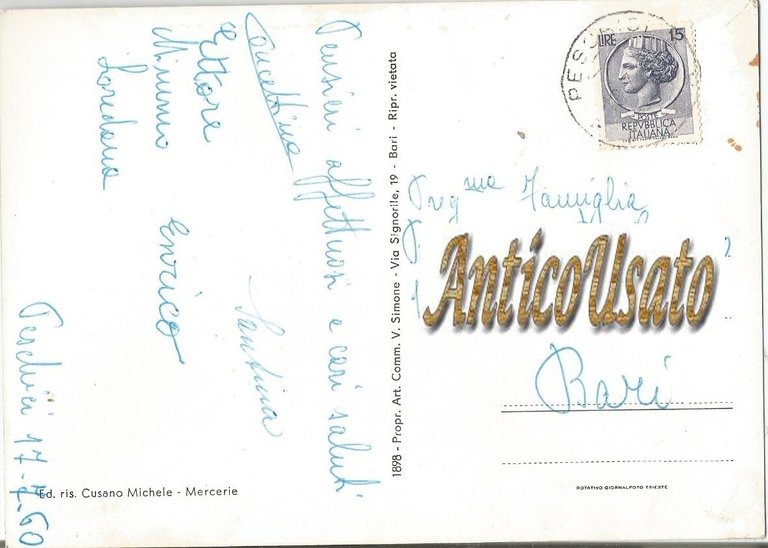 Pensieri affettuosi e cari saluti
Concettina
Ettore
Mimmo
Loredana
Enrico
Santina
Peschici 17-7-60
Ed. ris. Cusano Michele - Mercerie
1898 - Propr. Art. Comm. V. Simone - Via Signorile, 19 - Bari - Ripr. vietata
LIRE 15
POSTE
REPVBBLICA
ITALIANA
Preg.ma Famiglia
AnticoUsato
Bari
ROTATIVO GIORNALFOTO TRIESTE